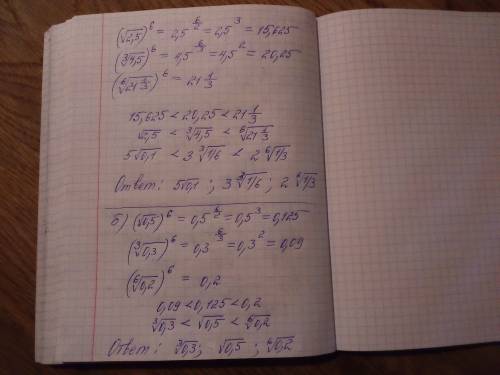 (√2,5)⁶ = 2,5^(6/2) = 2,5³ = 15,625
(∛4,5)⁶ = 4,5^(6/3) = 4,5² = 20,25
(⁶√(21 1/3))⁶ = 21 1/3
15,625 < 20,25 < 21 1/3
√2,5 < ∛4,5 < ⁶√(21 1/3)
5√0,1 < 3∛(1/6) < 2⁶√(1/3)
Ответ: 5√0,1 ; 3∛(1/6) ; 2⁶√(1/3)
б) (√0,5)⁶ = 0,5^(6/2) = 0,5³ = 0,125
(∛0,3)⁶ = 0,3^(6/3) = 0,3² = 0,09
(⁶√0,2)⁶ = 0,2
0,09 < 0,125 < 0,2
∛0,3 < √0,5 < ⁶√0,2
Ответ: ∛0,3; √0,5 ; ⁶√0,2